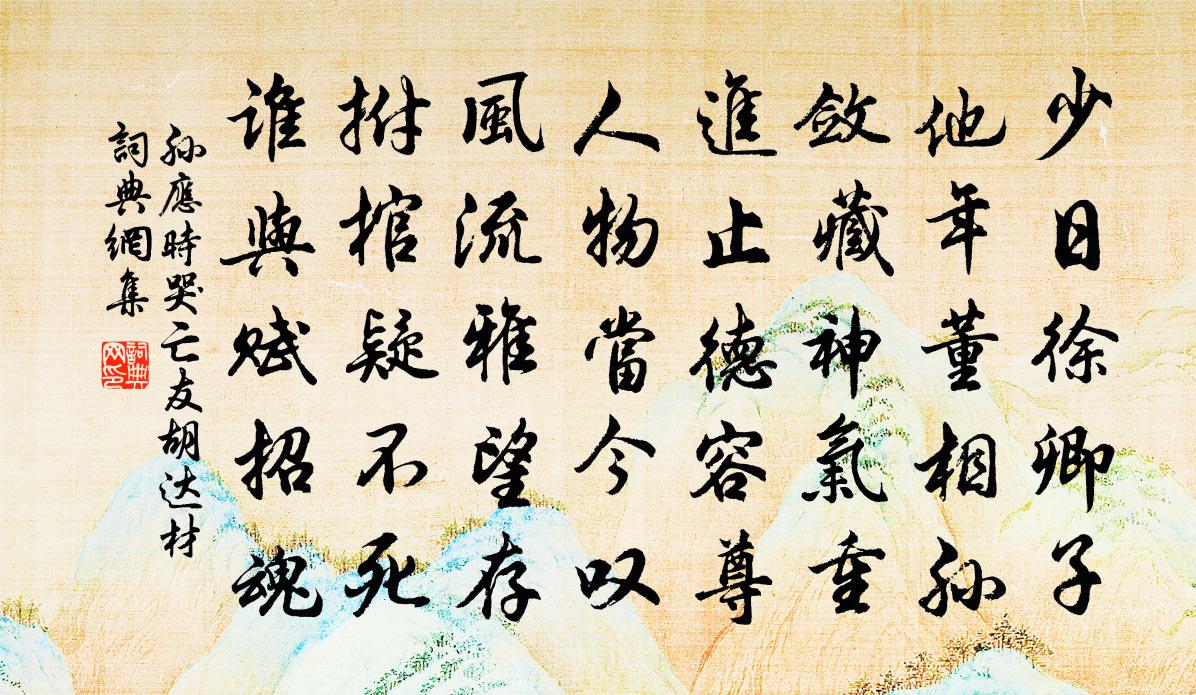 少日徐卿子
他年董相孙
斂藏神氣重
進止德容尊
人物當今叹
風流雅望存
拊棺疑不死
谁與赋招魂
孙應時哭亡友胡达材
詞典網集
詞典網印